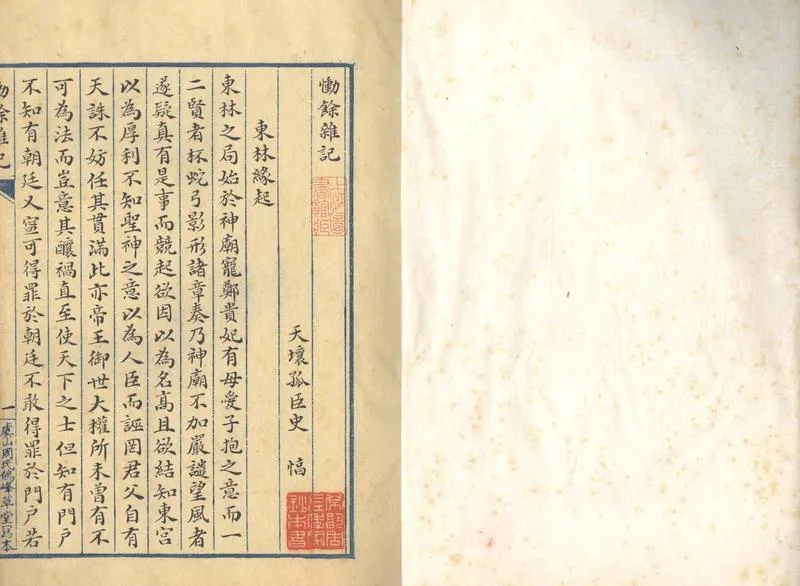 慟餘雜記
天壤孤臣史 惇
東林緣起
東林之局始於神廟寵鄭貴妃有母愛子抱之意而一
二賢者杯蛇弓影形諸章奏乃神廟不加嚴譴望風者
遂疑真有是事而競起欲因以為名高且欲結知東宮
以為厚利不知聖神之意以為人臣而誣罔君父自有
天誅不妨任其貫滿此亦帝王御世大權所未曾有不
可為法而豈意其釀禍直至使天下之士但知有門戶
不知有朝廷又寧可得罪於朝廷不敢得罪於門戶若
慟餘雜記
一
虞山周氏鴿峰草堂寫本